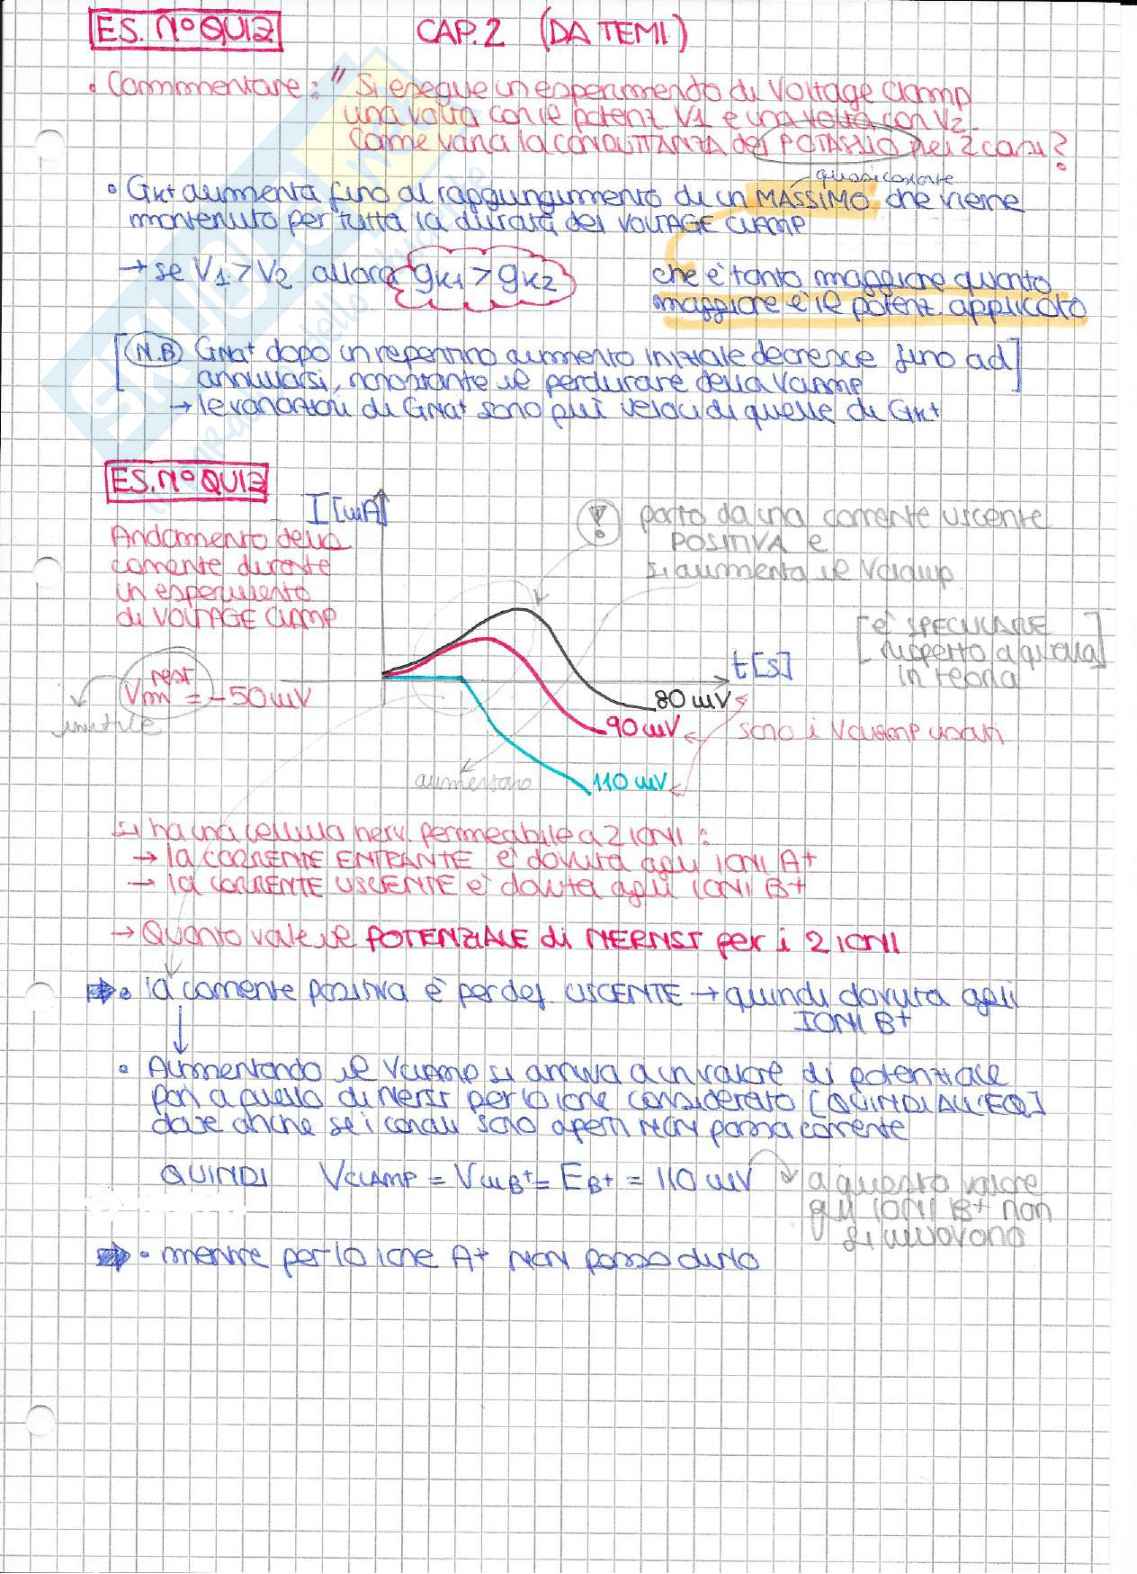 ES. NO QUIZ
CAP. 2 (DA TEMI)
• Commentare: "Si esegue un esperimento di Voltage Clamp
una volta con il potenz V1 e una volta con V2.
Come varia la CONDUTTANZA del POTASSIO nei 2 casi?
quasi costante
• GK+ aumenta fino al raggiungimento di un MASSIMO che viene
mantenuto per tutta la durata del VOLTAGE CLAMP
→ se V1 > V2 allora gK1 > gK2
che è tanto maggiore quanto
maggiore è il potenz. applicato
[N.B) GNa+ dopo un repentino aumento iniziale decresce fino ad
annullarsi, nonostante il perdurare della Vclamp]
→ le variazioni di GNa+ sono più veloci di quelle di GK+
ES. NO QUIZ
I [mA]
Andamento della
corrente durante
un esperimento
di VOLTAGE CLAMP
! parto da una corrente uscente
POSITIVA e
si aumenta il Vclamp
[è SPECULARE
rispetto a quella]
in teoria
t [s]
Vm rest = -50 mV
inutile
80 mV
90 mV
sono i Vclamp usati
aumentano
110 mV
Si ha una cellula nerv. permeabile a 2 IONI:
→ la CORRENTE ENTRANTE è dovuta agli IONI A+
→ la CORRENTE USCENTE è dovuta agli IONI B+
→ Quanto vale il POTENZIALE di NERNST per i 2 IONI
• la corrente positiva è per def. USCENTE → quindi dovuta agli
IONI B+
• Aumentando il Vclamp si arriva a un valore di potenziale
pari a quello di Nernst per lo ione considerato [QUINDI ALL'EQ]
dove anche se i canali sono aperti NON passa corrente
QUINDI VCLAMP = VmB+ = EB+ = 110 mV
a questo valore
gli IONI B+ non
si muovono
• mentre per lo ione A+ NON posso dirlo